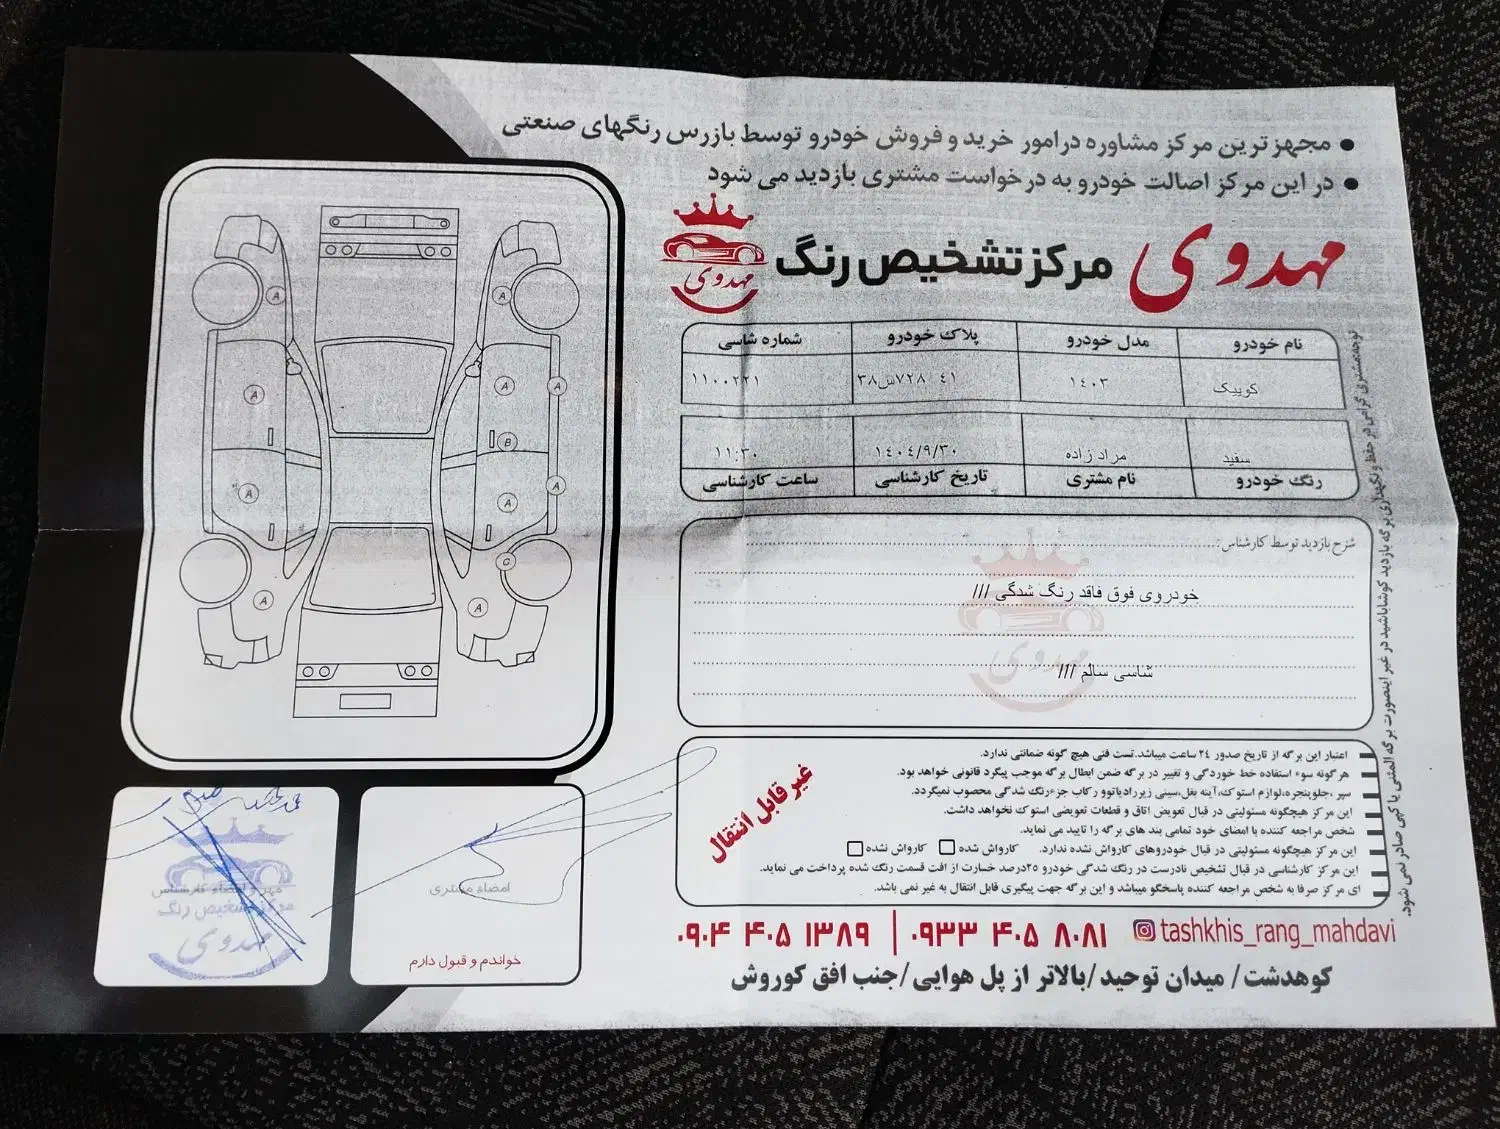 ● مجهز ترین مرکز مشاوره در امور خرید و فروش خودرو توسط بازرس رنگهای صنعتی
● در این مرکز اصالت خودرو به درخواست مشتری بازدید می شود
مهدوی مرکز تشخیص رنگ
مهدوی
نام خودرو مدل خودرو پلاک خودرو شماره شاسی
کوییک ۱۴۰۳ ۳۸س۷۲۸ ۴۱ ۱۱۰۰۲۲۱
سفید مراد زاده ۱۴۰۴/۹/۳۰ ۱۱:۳۰
رنگ خودرو نام مشتری تاریخ کارشناسی ساعت کارشناسی
شرح بازدید توسط کارشناس:
خودروی فوق فاقد رنگ شدگی ///
شاسی سالم ///
مهدوی
اعتبار این برگه از تاریخ صدور ۲۴ ساعت میباشد.تست فنی هیچ گونه ضمانتی ندارد.
هرگونه سوء استفاده خط خوردگی و تغییر در برگه ضمن ابطال برگه موجب پیگرد قانونی خواهد بود.
سپر ،جلوپنجره،لوازم استوک،آینه بغل،سینی زیررادیاتوو رکاب جزءرنگ شدگی محصوب نمیگردد.
این مرکز هیچگونه مسئولیتی در قبال تعویض اتاق و قطعات تعویضی استوک نخواهد داشت.
شخص مراجعه کننده با امضای خود تمامی بند های برگه را تایید می نماید.
این مرکز هیچگونه مسئولیتی در قبال خودروهای کارواش نشده ندارد. کارواش شده کارواش نشده
این مرکز کارشناسی در قبال تشخیص نادرست در رنگ شدگی خودرو ۲۵درصد خسارت از افت قسمت رنگ شده پرداخت می نماید.
ای مرکز صرفا به شخص مراجعه کننده پاسخگو میباشد و این برگه جهت پیگیری قابل انتقال به غیر نمی باشد.
غیر قابل انتقال
توجه:مشتری گرامی در حفظ ونگهداری برگه بازدید کوشاباشید در غیر اینصورت برگه المثنی یا کپی صادر نمی شود.
tashkhis_rang_mahdavi
۰۹۳۳ ۴۰۵ ۸۰۸۱ | ۰۹۰۴ ۴۰۵ ۱۳۸۹
کوهدشت/ میدان توحید /بالاتر از پل هوایی/جنب افق کوروش
A A
A A A
B
A A A
C
A A
امضاء مشتری
خواندم و قبول دارم
مهر و امضاء کارشناس
مرکز تشخیص رنگ
مهدوی